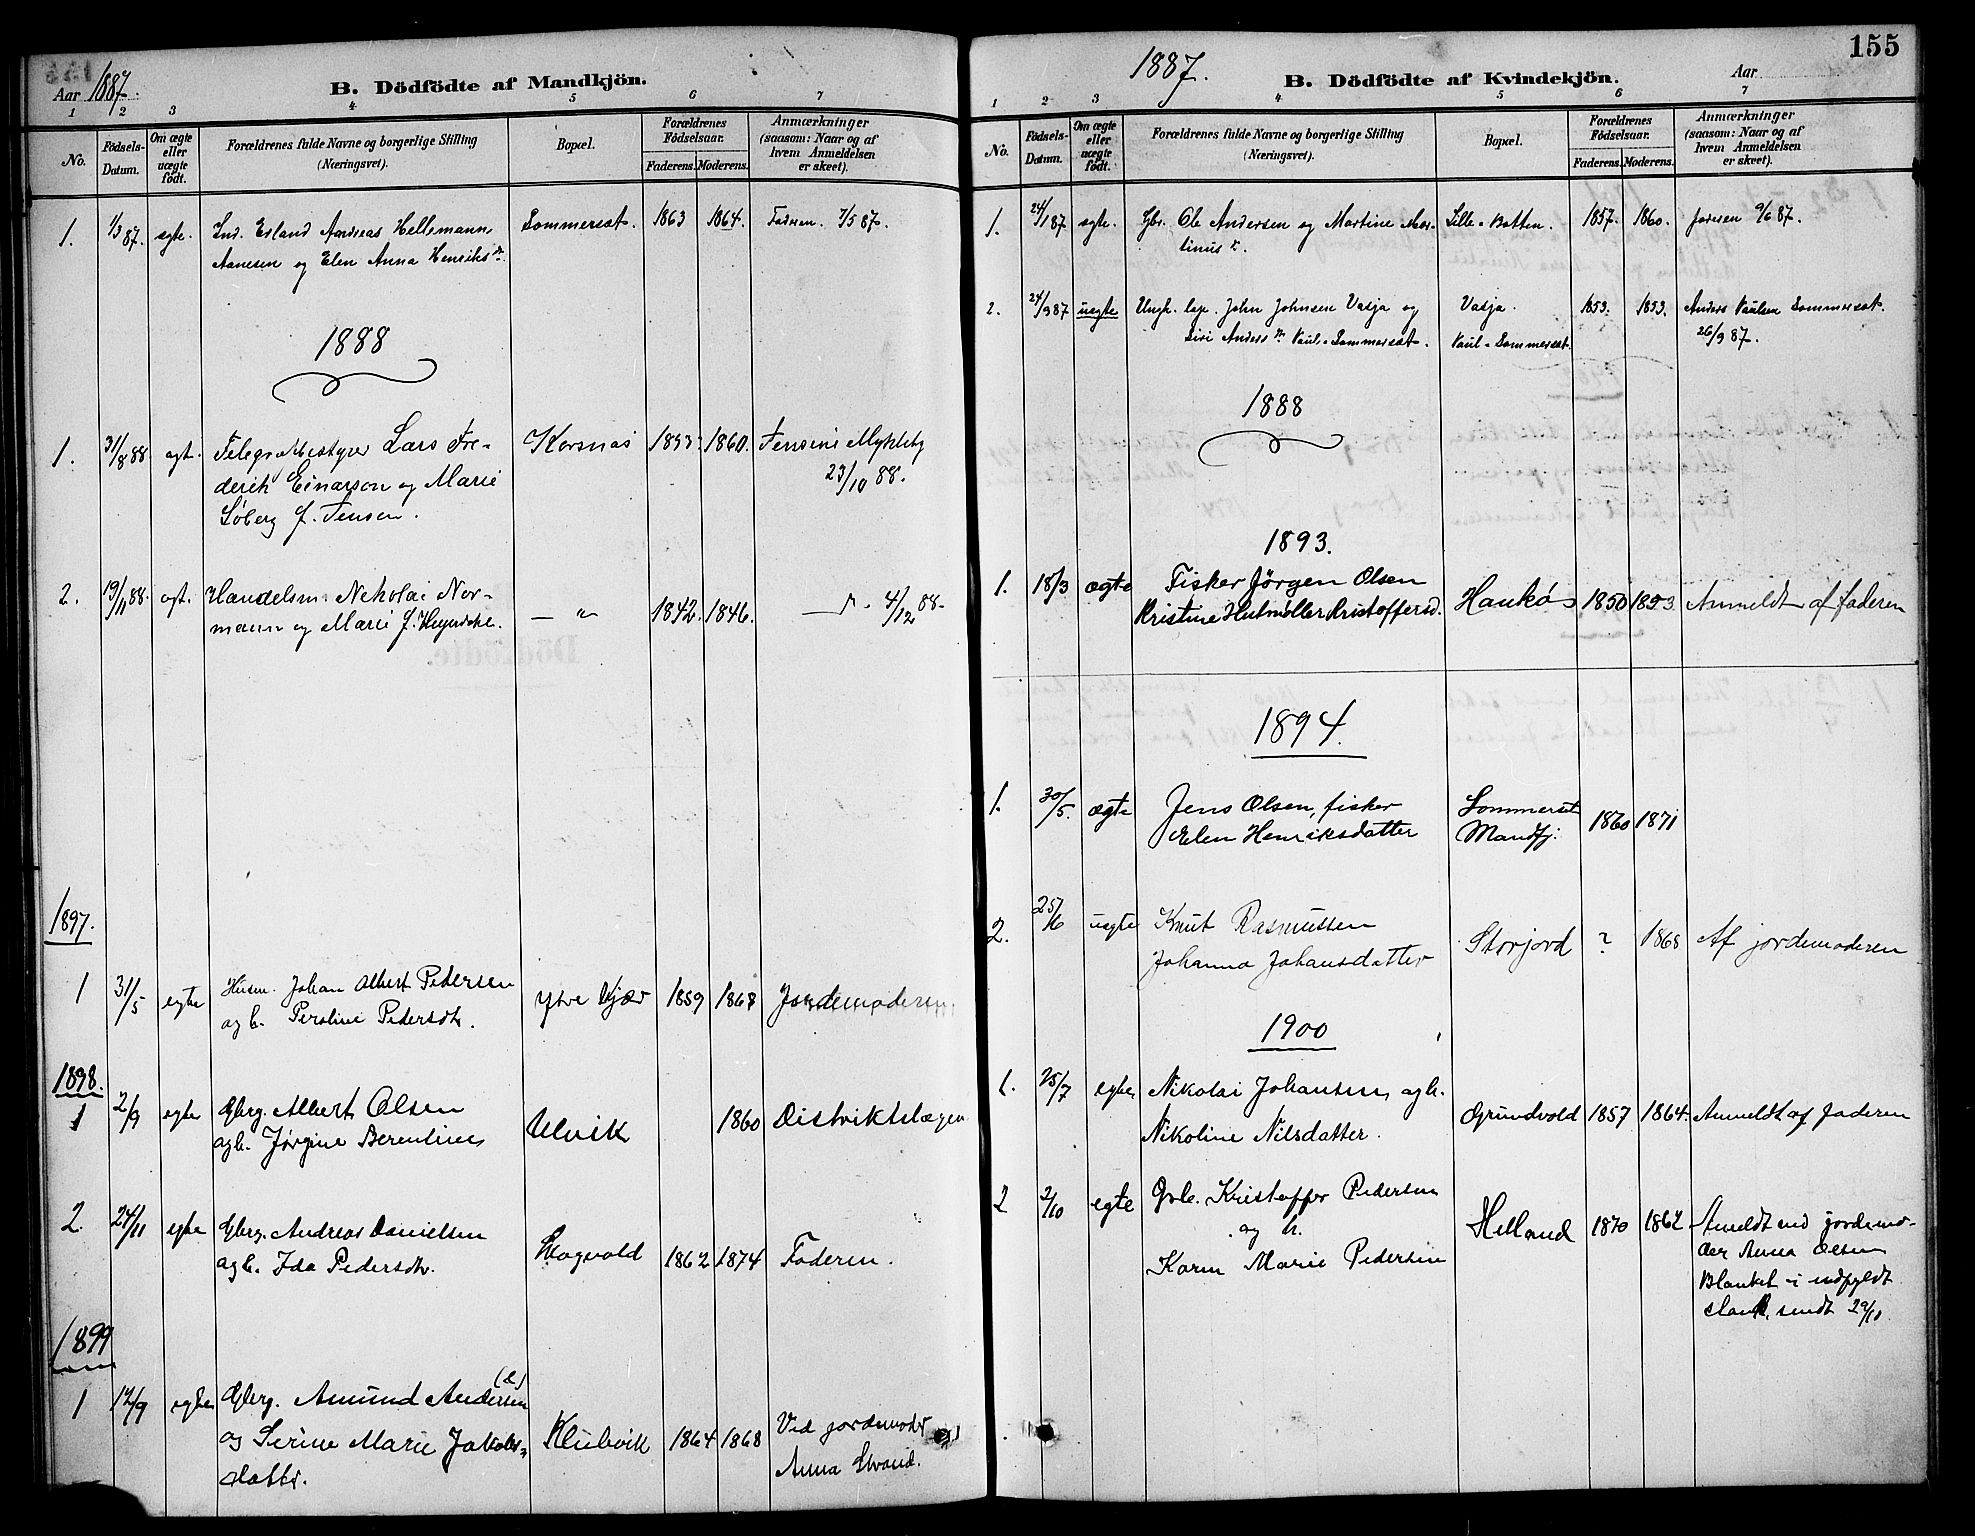 Aar 1887.
B. Dödfödte af Mandkjön.
1 2 3 4 5 6 7
No.
Födsels-
Datum.
Om ægte
eller
uægte
födt.
Forældrenes fulde Navne og borgerlige Stilling
(Næringsvei).
Bopæl.
Forældrenes
Födselsaar.
Faderens. Moderens.
Anmærkninger
(saasom: Naar og af
hvem Anmeldelsen
er skeet).
1. 1/3 87. egte. Ind. Erland Andreas Hellemann Sommerset. 1863 1864. Faderen. 7/5 87.
Aanesen og Elen Anna Henriksdr.
1888
1. 31/8 88. egt. Telegrafbestyrer Lars Fre- Korsnas 1853. 1860. Jensine Mykleby
derik Einarson og Marie 23/10 88.
Söberg f. Jensen.
2. 19/11 88. egt. Handelsm. Nekolai Nor- — " 1842. 1846. 4/12 88.
mann og Marie f.
1897.
1 31/5 egte Husm. Johan Albert Pedersen Ytre Kjær 1859 1868 Jordemoderen.
og h. Peroline Pedersdtr.
1898.
1 2/9 egte Gbrg. Albert Olsen Ulvik 1860 Distriktslægen
og h. Jørgine Berentine
2. 24/11 egte Gbrg. Andreas Danielsen Skogvold 1862 1874 Faderen.
og h. Ida Pedersdtr.
1899
1 12/9 egte Gbrg. Amund Andersen (d) Klubvik 1864 1868 Ved jordemoder
og Serine Marie Jakobs- Anna Strand.
datter.
155
1887.
B. Dödfödte af Kvindekjön.
Aar
1 2 3 4 5 6 7
No.
Födsels-
Datum.
Om ægte
eller
uægte
födt.
Forældrenes fulde Navne og borgerlige Stilling
(Næringsvei).
Bopæl.
Forældrenes
Födselsaar.
Faderens. Moderens.
Anmærkninger
(saasom: Naar og af
hvem Anmeldelsen
er skeet).
1. 24/1 87 egte. Gbr. Ole Andersen og Martine Mar- Lille-Botten. 1857. 1860. faderen 9/6 87.
tinusdr.
2. 24/9 87 uegte Ungk. lap. John Johnsen Vasja og Vasja. 1853. 1853. Anders Paulsen Sommerset.
Siri Andersdr. Paul-Sommerset. Paul-Sommerset. 26/9 87.
1888
1893.
1. 18/3 ægte Fisker Jörgen Olsen Haukö 1850 1853. Anmeldt af faderen
Kristine Hutmöller Kristoffersd.
1894.
1. 30/5. ægte Jens Olsen, fisker Sommerset 1860 1871
Elen Henriksdatter Mandfj.
2. 25/6 uegte Knut Rasmussen Storjord ? 1868 Af jordemoderen
Johanna Johansdatter
1900
1. 25/7 egte Nikolai Johansen og h. Grundvold 1857 1864. Anmeldt af faderen
Nikoline Nilsdatter.
2 2/10 egte Gbr. Kristoffer Pedersen Helland 1870 1862 Anmeldt ved jordemo-
og h. der Anna Olsen
Karen Marie Pedersen Blanket i udfyldt
stand, sendt 29/10